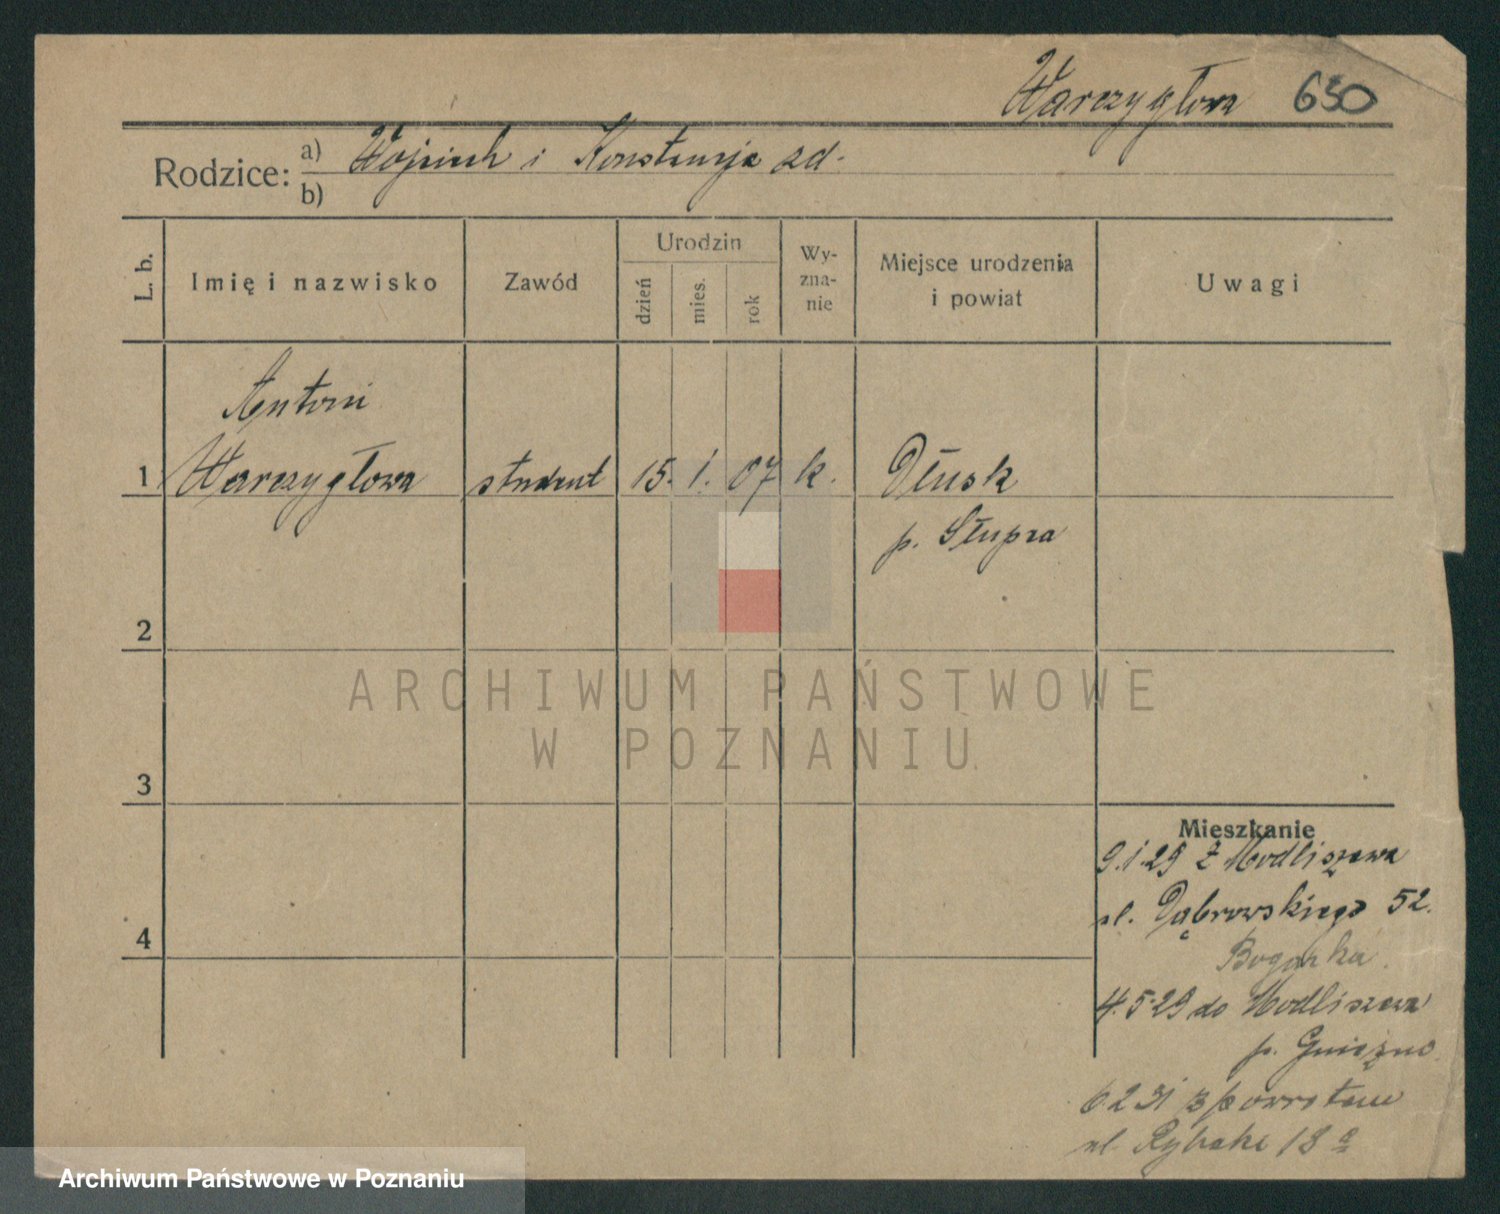 Warczygłowa 630
Rodzice: a) Wojciech i Konstancja zd.
b)
L. b. Imię i nazwisko Zawód Urodzin dzień mies. rok Wy-zna-nie Miejsce urodzenia i powiat Uwagi
Antoni
1 Warczygłowa student 15. 1. 07 k. Dłusk
p. Słupca
2
ARCHIWUM PAŃSTWOWE
W POZNANIU
3
Mieszkanie
9.1.29 z Modliszewa
ul. Dąbrowskiego 52.
4
4.5.29 do Modliszewa
p. Gniezno
6 2 31 z powrotem
ul. Rybaki 18a
Archiwum Państwowe w Poznaniu